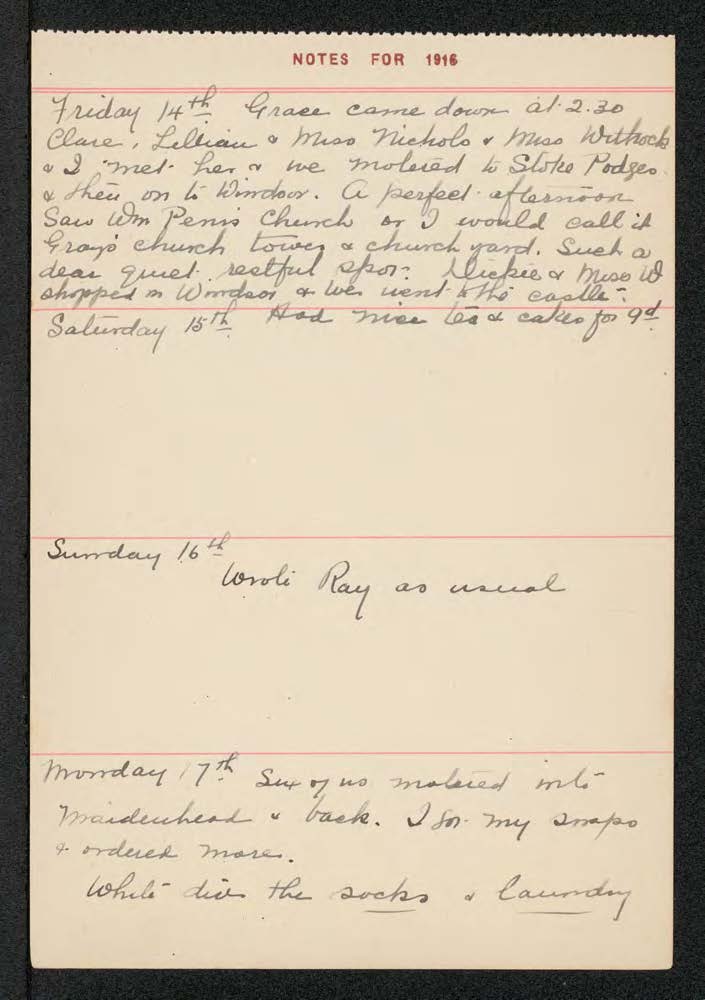 NOTES FOR 1916
Friday 14th. Grace came down at 2.30
Clare, Lillian & Miss Nichols & Miss
& I met her & we motored to Stoke Podges
& then on to Windsor. A perfect afternoon
Saw Wm Penns Church or I would call it
Gray's church tower & church yard. Such a
dear quiet restful spot. Nickie & Miss W
shopped in Windsor & we went to the castle.
Saturday 15th. Had nice tea & cakes for 9d
Sunday 16th
Wrote Ray as usual
Monday 17th Six of us motored into
Maidenhead & back. I got my snaps
& ordered more.
White did the socks & laundry